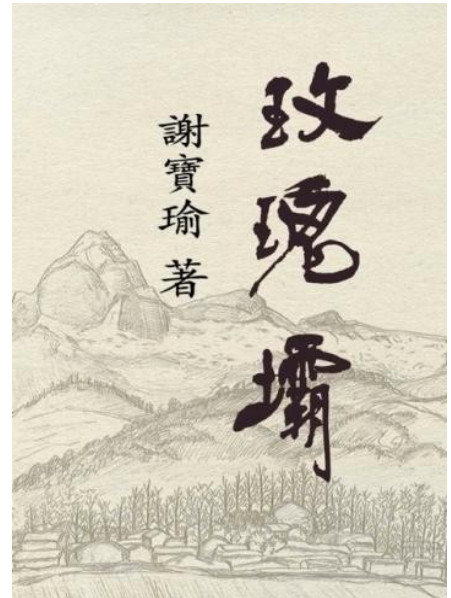 玫瑰壩
謝寶瑜 著